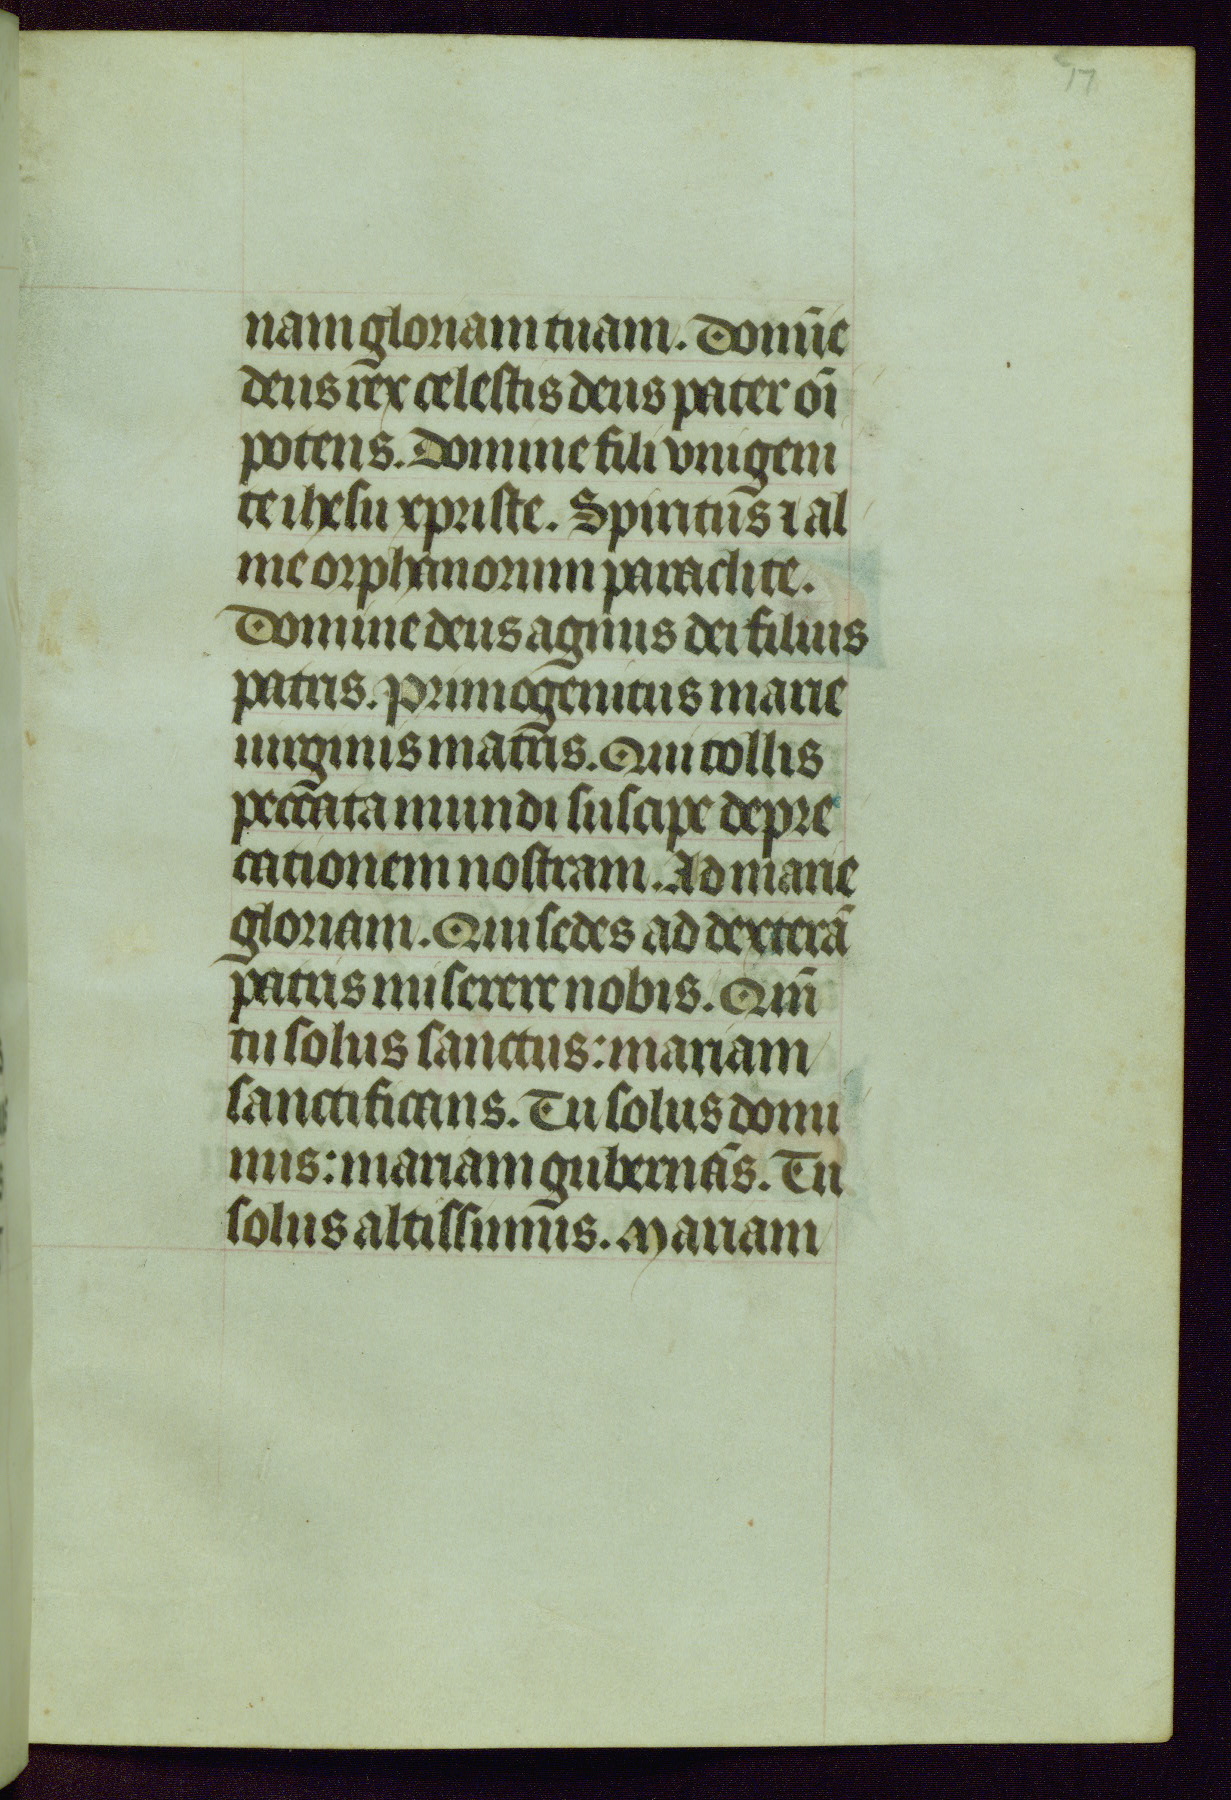 17
nam gloriam tuam. Domīe
deus rex celestis deus pater oī
potens. Domine fili vnigeni
te ihesu xpriste. Spiritus ⁊ al
me orphanorum paraclite.
Domine deus agnus dei filius
patris. primogenitus marie
uirginis matris. Qui tollis
peccata mundi suscipe depre
cationem nostram. Ad marie
gloriam. Qui sedes ad dexterā
patris miserere nobis. Qm̄
tu solus sanctus: mariam
sanctificans. Tu solus domi
nus: mariam gubernās. Tu
solus altissimus. Mariam